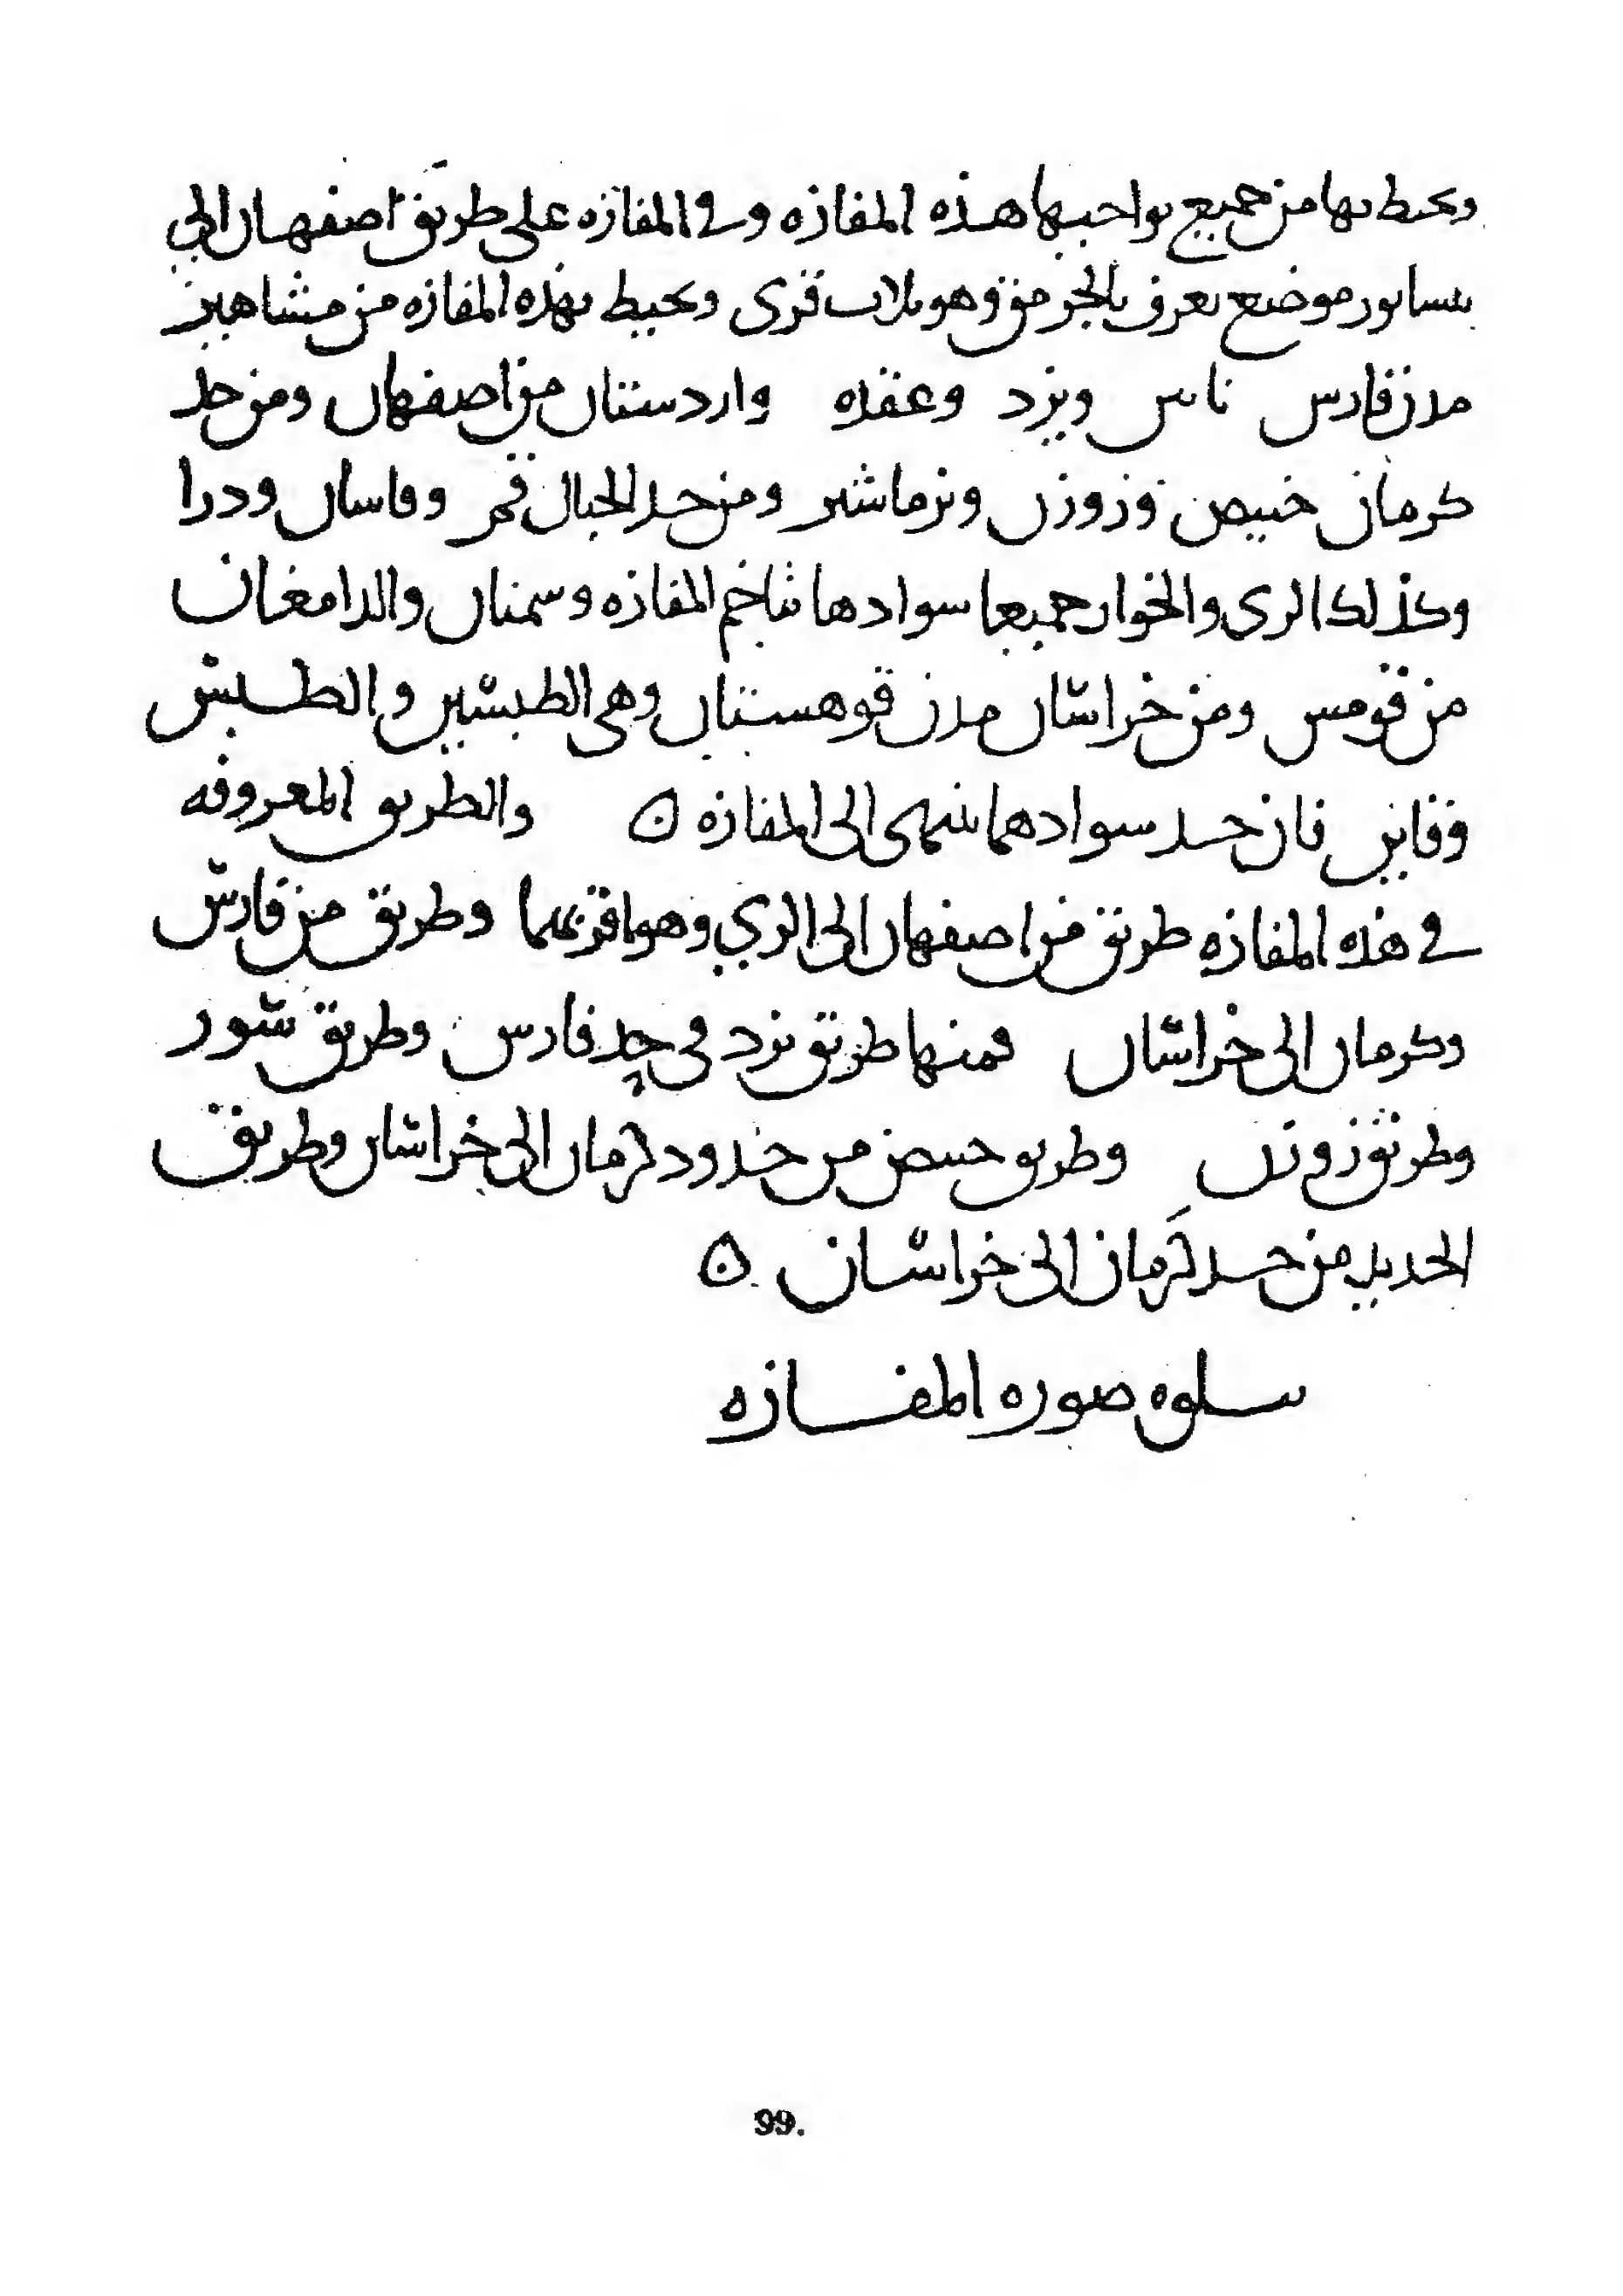 ويحيط بها من جميع نواحيها هذه المفازه وفي المفازه على طريق اصفهان الي
نيسابور موضع يعرف بالجرمق وهو ثلاث قرى ويحيط بهذه المفازه من مشاهير
مدن فارس ناىىن ويزد وعقده واردستان من اصفهان ومن حد
كرمان خبيص وزوزن ونرماشير ومن حد الجبال قم وقاسان ودرا
وكذلك الري والخوار جميعا سوادها تتاخم المفازه وسمنان والدامغان
من قومس ومن خراسان مدن قوهستان وهي الطبسين والطبس
وقاين فان حد سوادهما ينتهى الى المفازه ۞ والطريق المعروفه
في هذه المفازه طريق من اصفهان الى الري وهو اقربهما وطريق من فارس
وكرمان الى خراسان فمنها طريق يزد في حد فارس وطريق شور
وطريق زوزن وطريق خبيص من حدود كرمان الى خراسان وطريق
الحديد من حد كرمان الى خراسان ۞
يتلوه صوره المفازه
99.